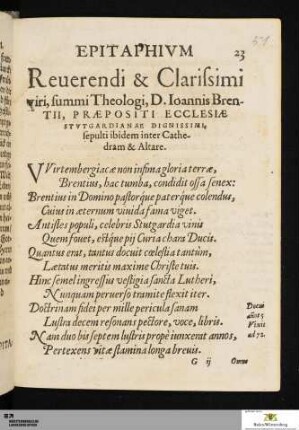 EPITAPHIVM 23
Reuerendi & Clarissimi
viri, summi Theologi, D. Ioannis Bren-
TII, PRÆPOSITI ECCLESIÆ
STVTGARDIANAE DIGNISSIMI,
sepulti ibidem inter Cathe-
dram & Altare.
VVirtembergiacæ non infima gloria terræ,
Brentius, hac tumba, condidit ossa senex:
Brentius in Domino pastorque paterque colendus,
Cuius in æternum viuida fama viget.
Antistes populi, celebris Stutgardia viuū
Quem fouet, estque pij Curia chara Ducis.
Quantus erat, tantus docuit cœlestia tantùm,
Lætatus meritis maxime Christe tuis.
Hinc semel ingressus vestigia sancta Lutheri,
Nunquam peruerso tramite flexit iter.
Doctrinam fidei per mille pericula sanam
Lustra decem resonans pectore, voce, libris.
Nam duo bis septem lustris propè iunxerat annos,
Pertexens vitæ stamina longa breuis.
Docui
Vixit
ad 72.
G ij